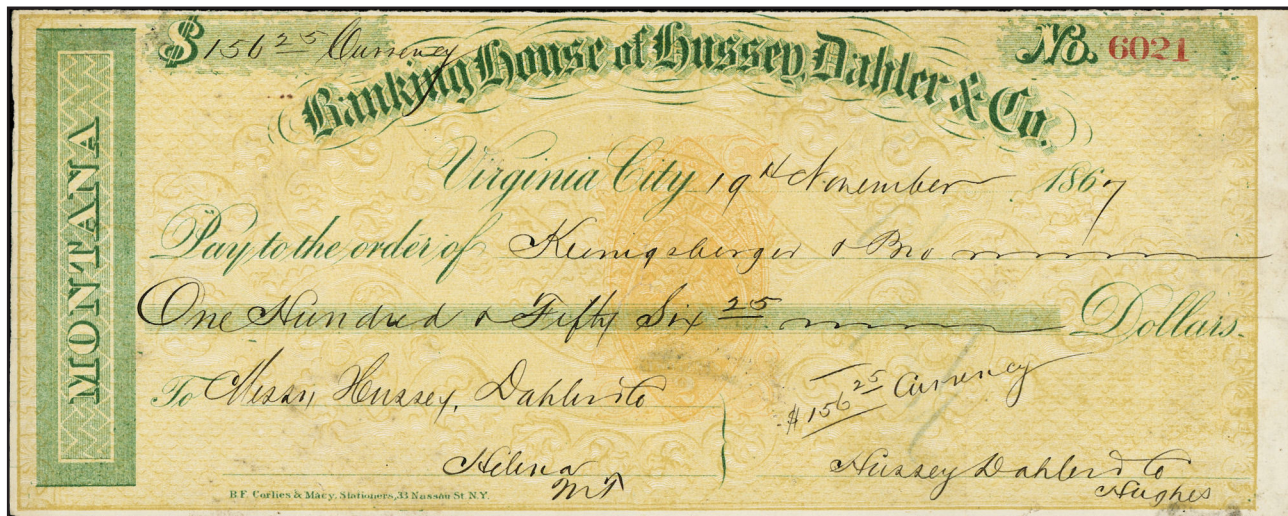 $ 156 25 Currency
No. 6021
Banking House of Hussey, Dahler & Co.
MONTANA
Virginia City, 19th November 1867
Pay to the order of Keenigsberger & Bro
One Hundred & Fifty Six 25 Dollars.
To Messrs Hussey, Dahler & Co
$156 25 Currency
Helena
MT
Hussey Dahler & Co
Hughes
B.F. Corlies & Macy, Stationers, 33 Nassau St. N.Y.